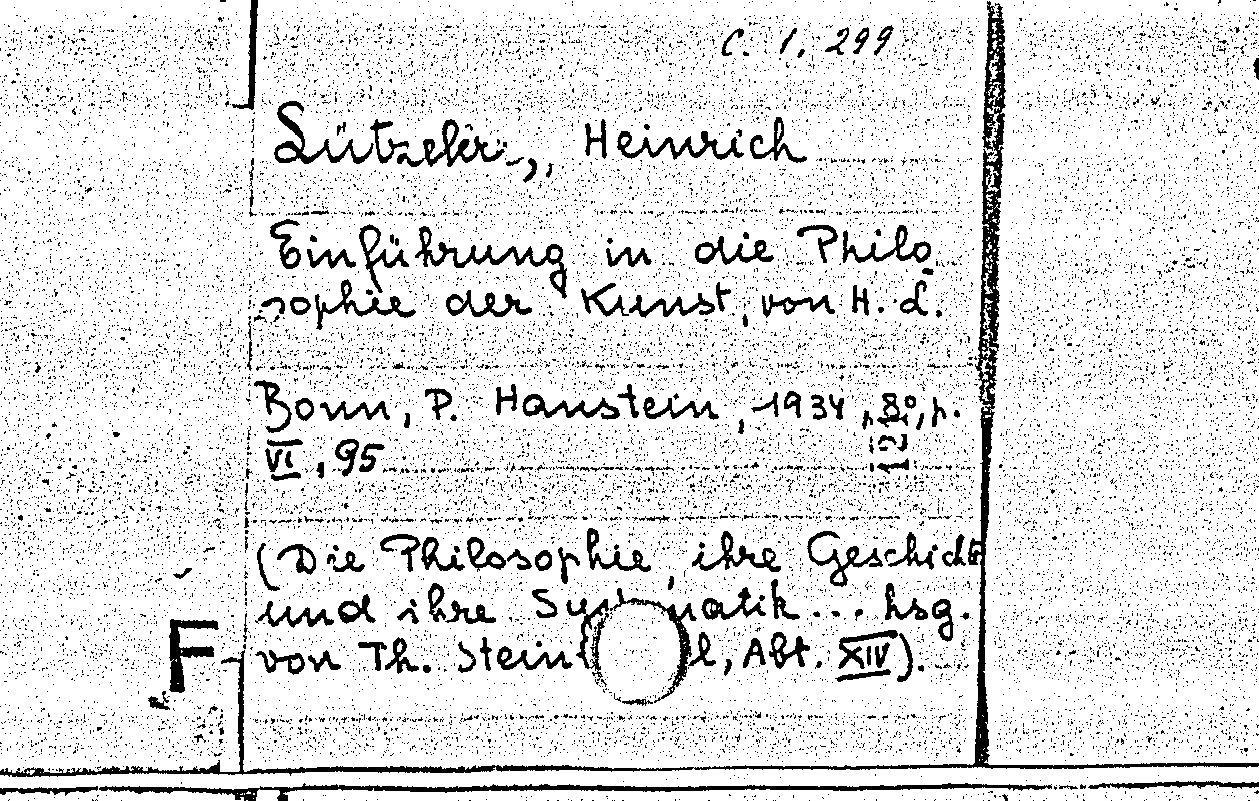 C. 1. 299
Lützeler, Heinrich
Einführung in die Philo
sophie der Kunst, von H. L.
Bonn, P. Hanstein, 1934, 8°, p.
VI, 95
12
(Die Philosophie, ihre Geschichte
und ihre ... hsg.
von Th. Abt. XIV).
F